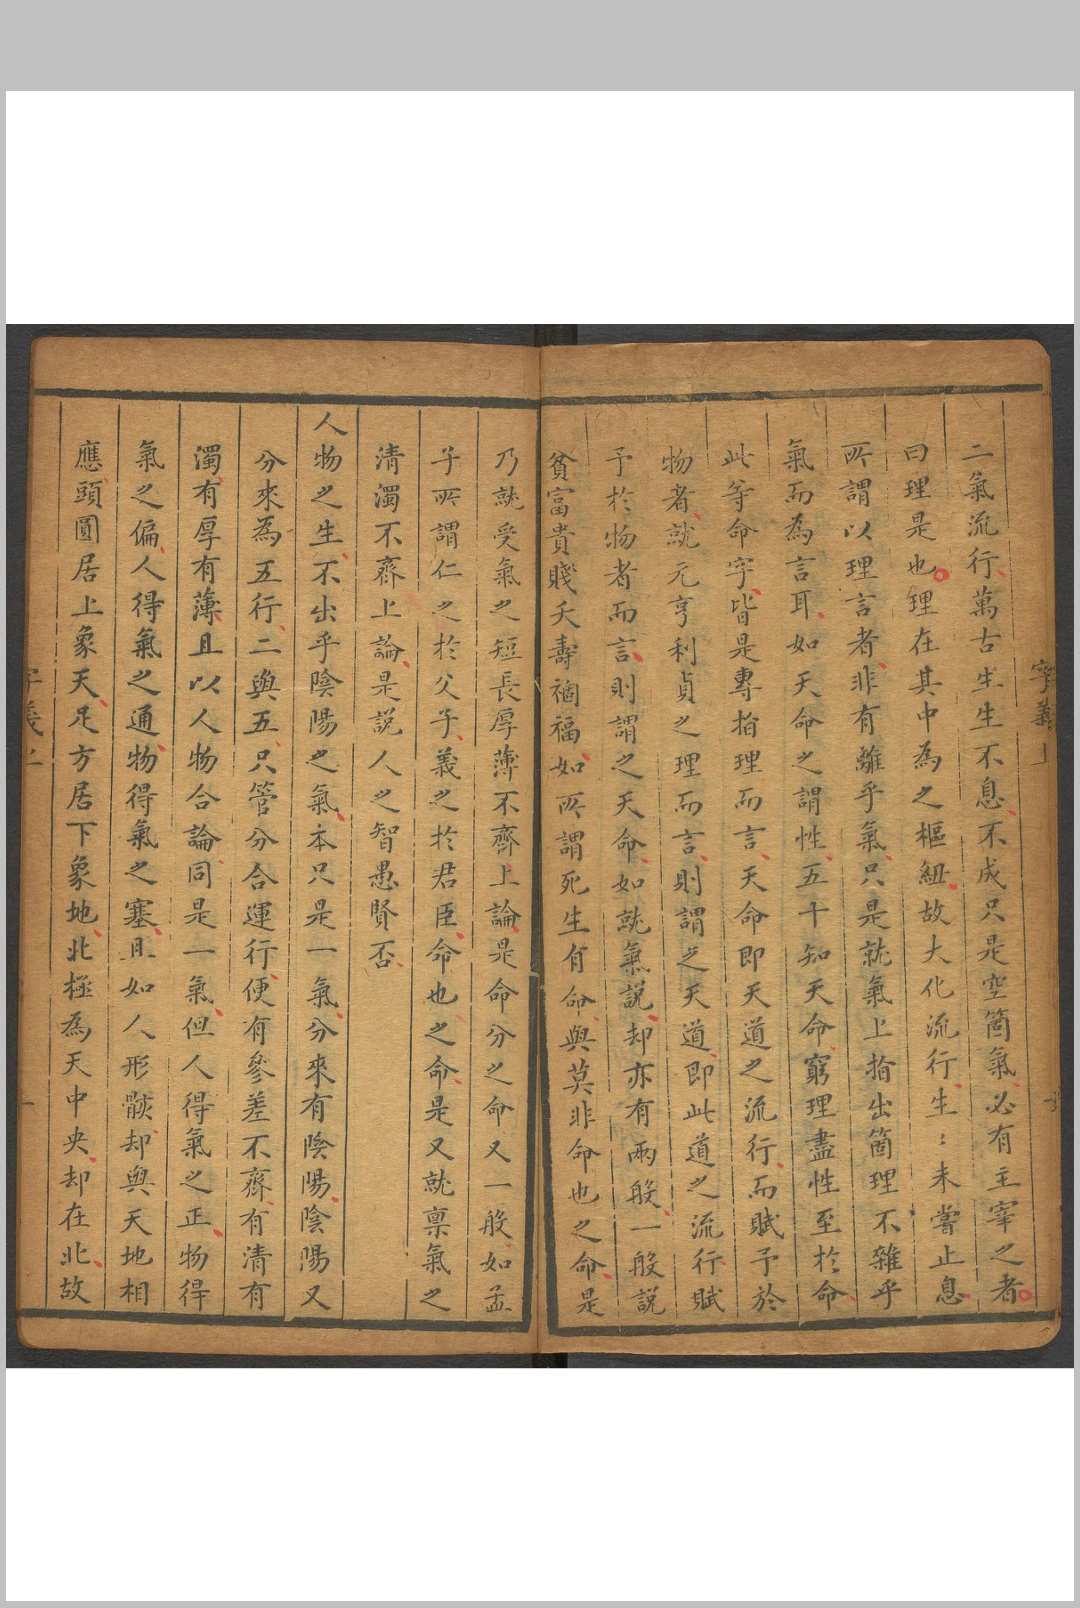 字義上
二氣流行萬古生生不息不成只是空箇氣必有主宰之者
曰理是也理在其中為之樞紐故大化流行生〻未嘗止息
所謂以理言者非有離乎氣只是就氣上指出箇理不雜乎
氣而為言耳如天命之謂性五十知天命窮理盡性至於命
此等命字皆是專指理而言天命即天道之流行而賦予於
物者就元亨利貞之理而言則謂之天道即此道之流行賦
予於物者而言則謂之天命如就氣說却亦有兩般一般說
貧富貴賤夭壽禍福如所謂死生有命與莫非命也之命是
乃就受氣之短長厚薄不齊上論是命分之命又一般如孟
子所謂仁之於父子義之於君臣命也之命是又就稟氣之
清濁不齊上論是說人之智愚賢否
人物之生不出乎陰陽之氣本只是一氣分來有陰陽陰陽又
分來為五行二與五只管分合運行便有參差不齊有清有
濁有厚有薄且以人物合論同是一氣但人得氣之正物得
氣之偏人得氣之通物得氣之塞且如人形骸却與天地相
應頭圓居上象天足方居下象地北極為天中央却在北故
字義上